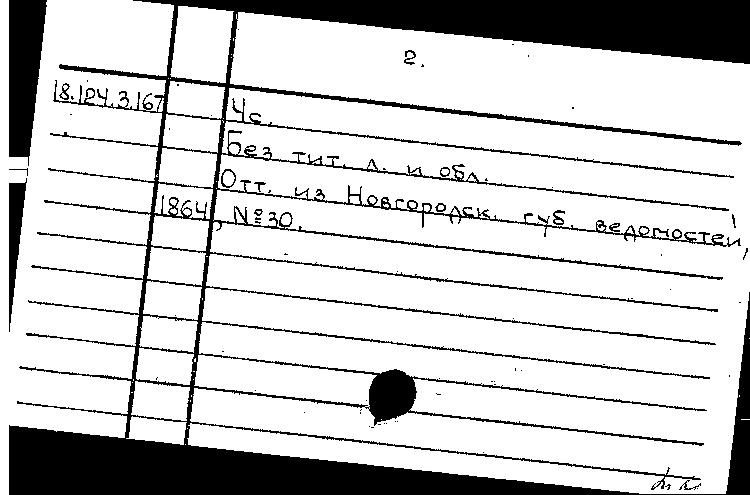 2.
18.124.3.167
4с.
Без тит. л. и обл.
Отт. из Новгородск. губ. ведомостей,
1864, № 30.